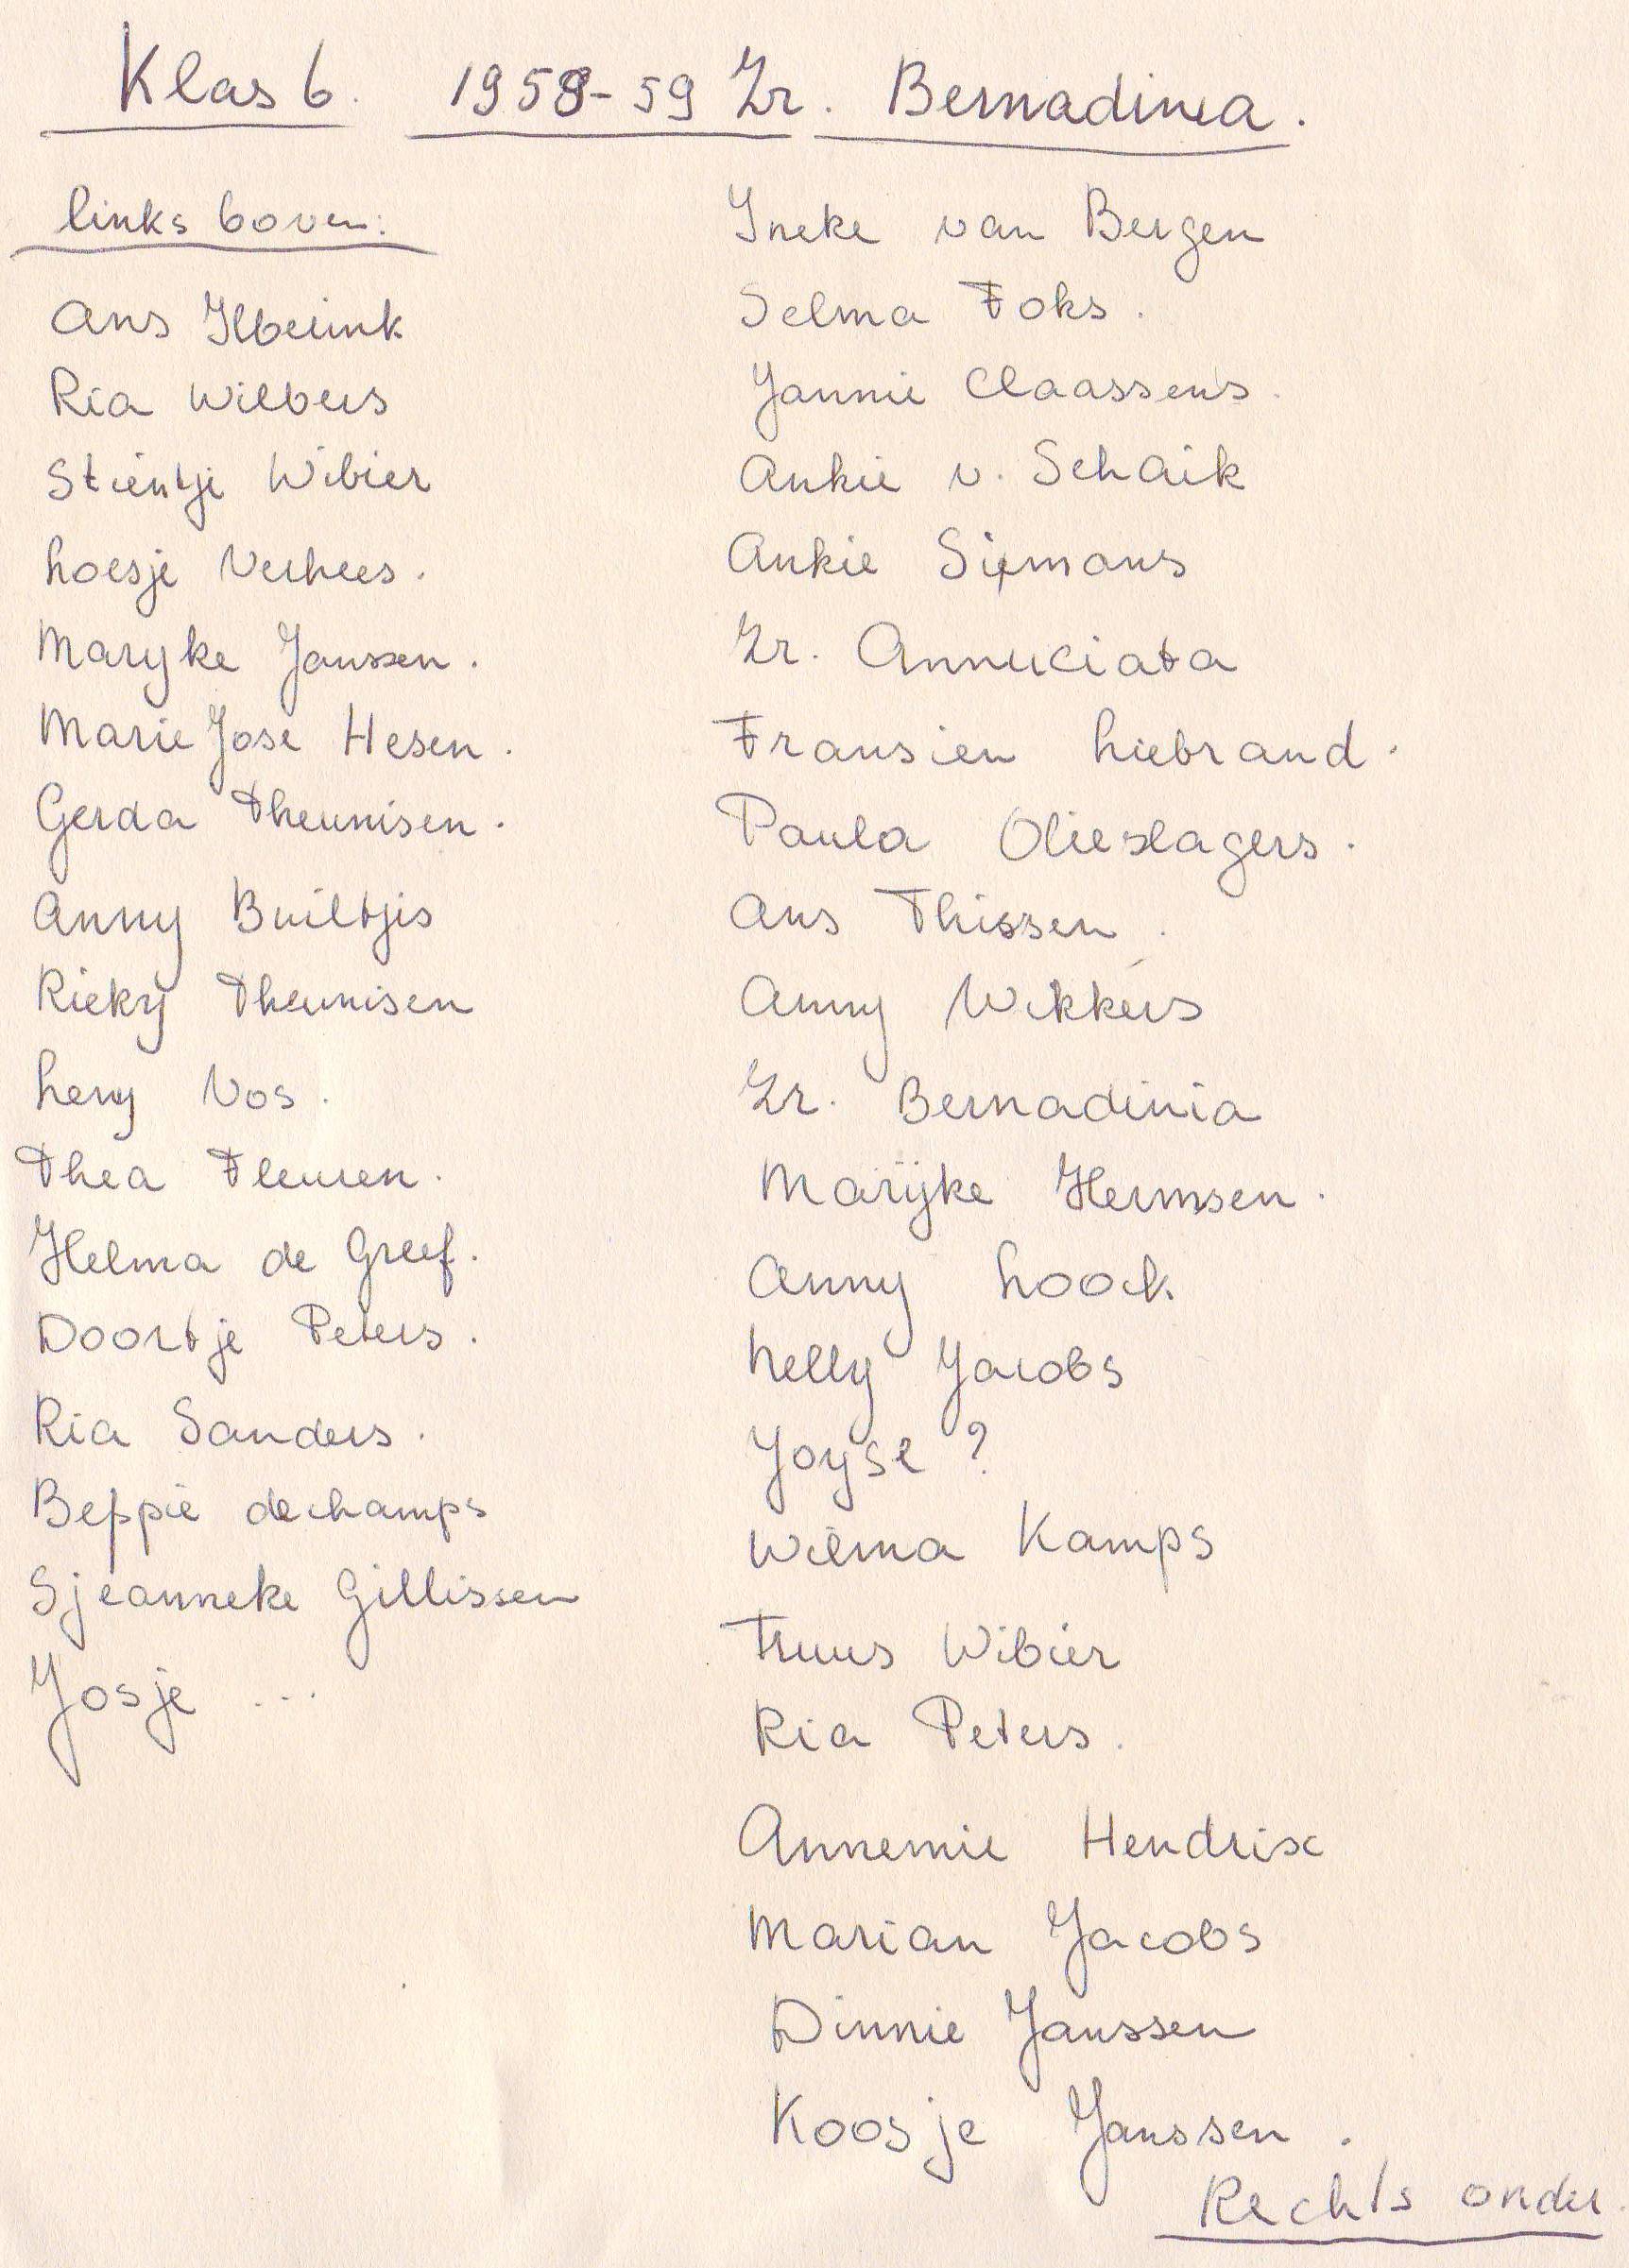 Klas 6. 1958-59 Zr. Bernadinia.
links boven:
Ans Ilberink
Ria Wilbers
Stientje Wibier
Loesje Verhees.
Maryke Janssen.
Marie Jose Hesen.
Gerda Theunisen.
Anny Builtjes
Rieky Theunisen
Leny Vos.
Thea Fleuren.
Helma de Greef.
Doortje Peters.
Ria Sanders.
Beppie dechamps
Sjeanneke Gillissen
Josje ...
Ineke van Bergen
Selma Foks.
Jannie Claassens.
Ankie v. Schaik
Ankie Siemons
Zr. Annuciata
Fransien Liebrand.
Paula Olieslagers.
Ans Thissen.
Anny Wikkers
Zr. Bernadinia
Marijke Hermsen.
Anny Loock
Nelly Jacobs
Joyse ?
Wilma Kamps
Truus Wibier
Ria Peters.
Annemie Hendrix
Marian Jacobs
Dinnie Janssen
Koosje Janssen.
Rechts onder.